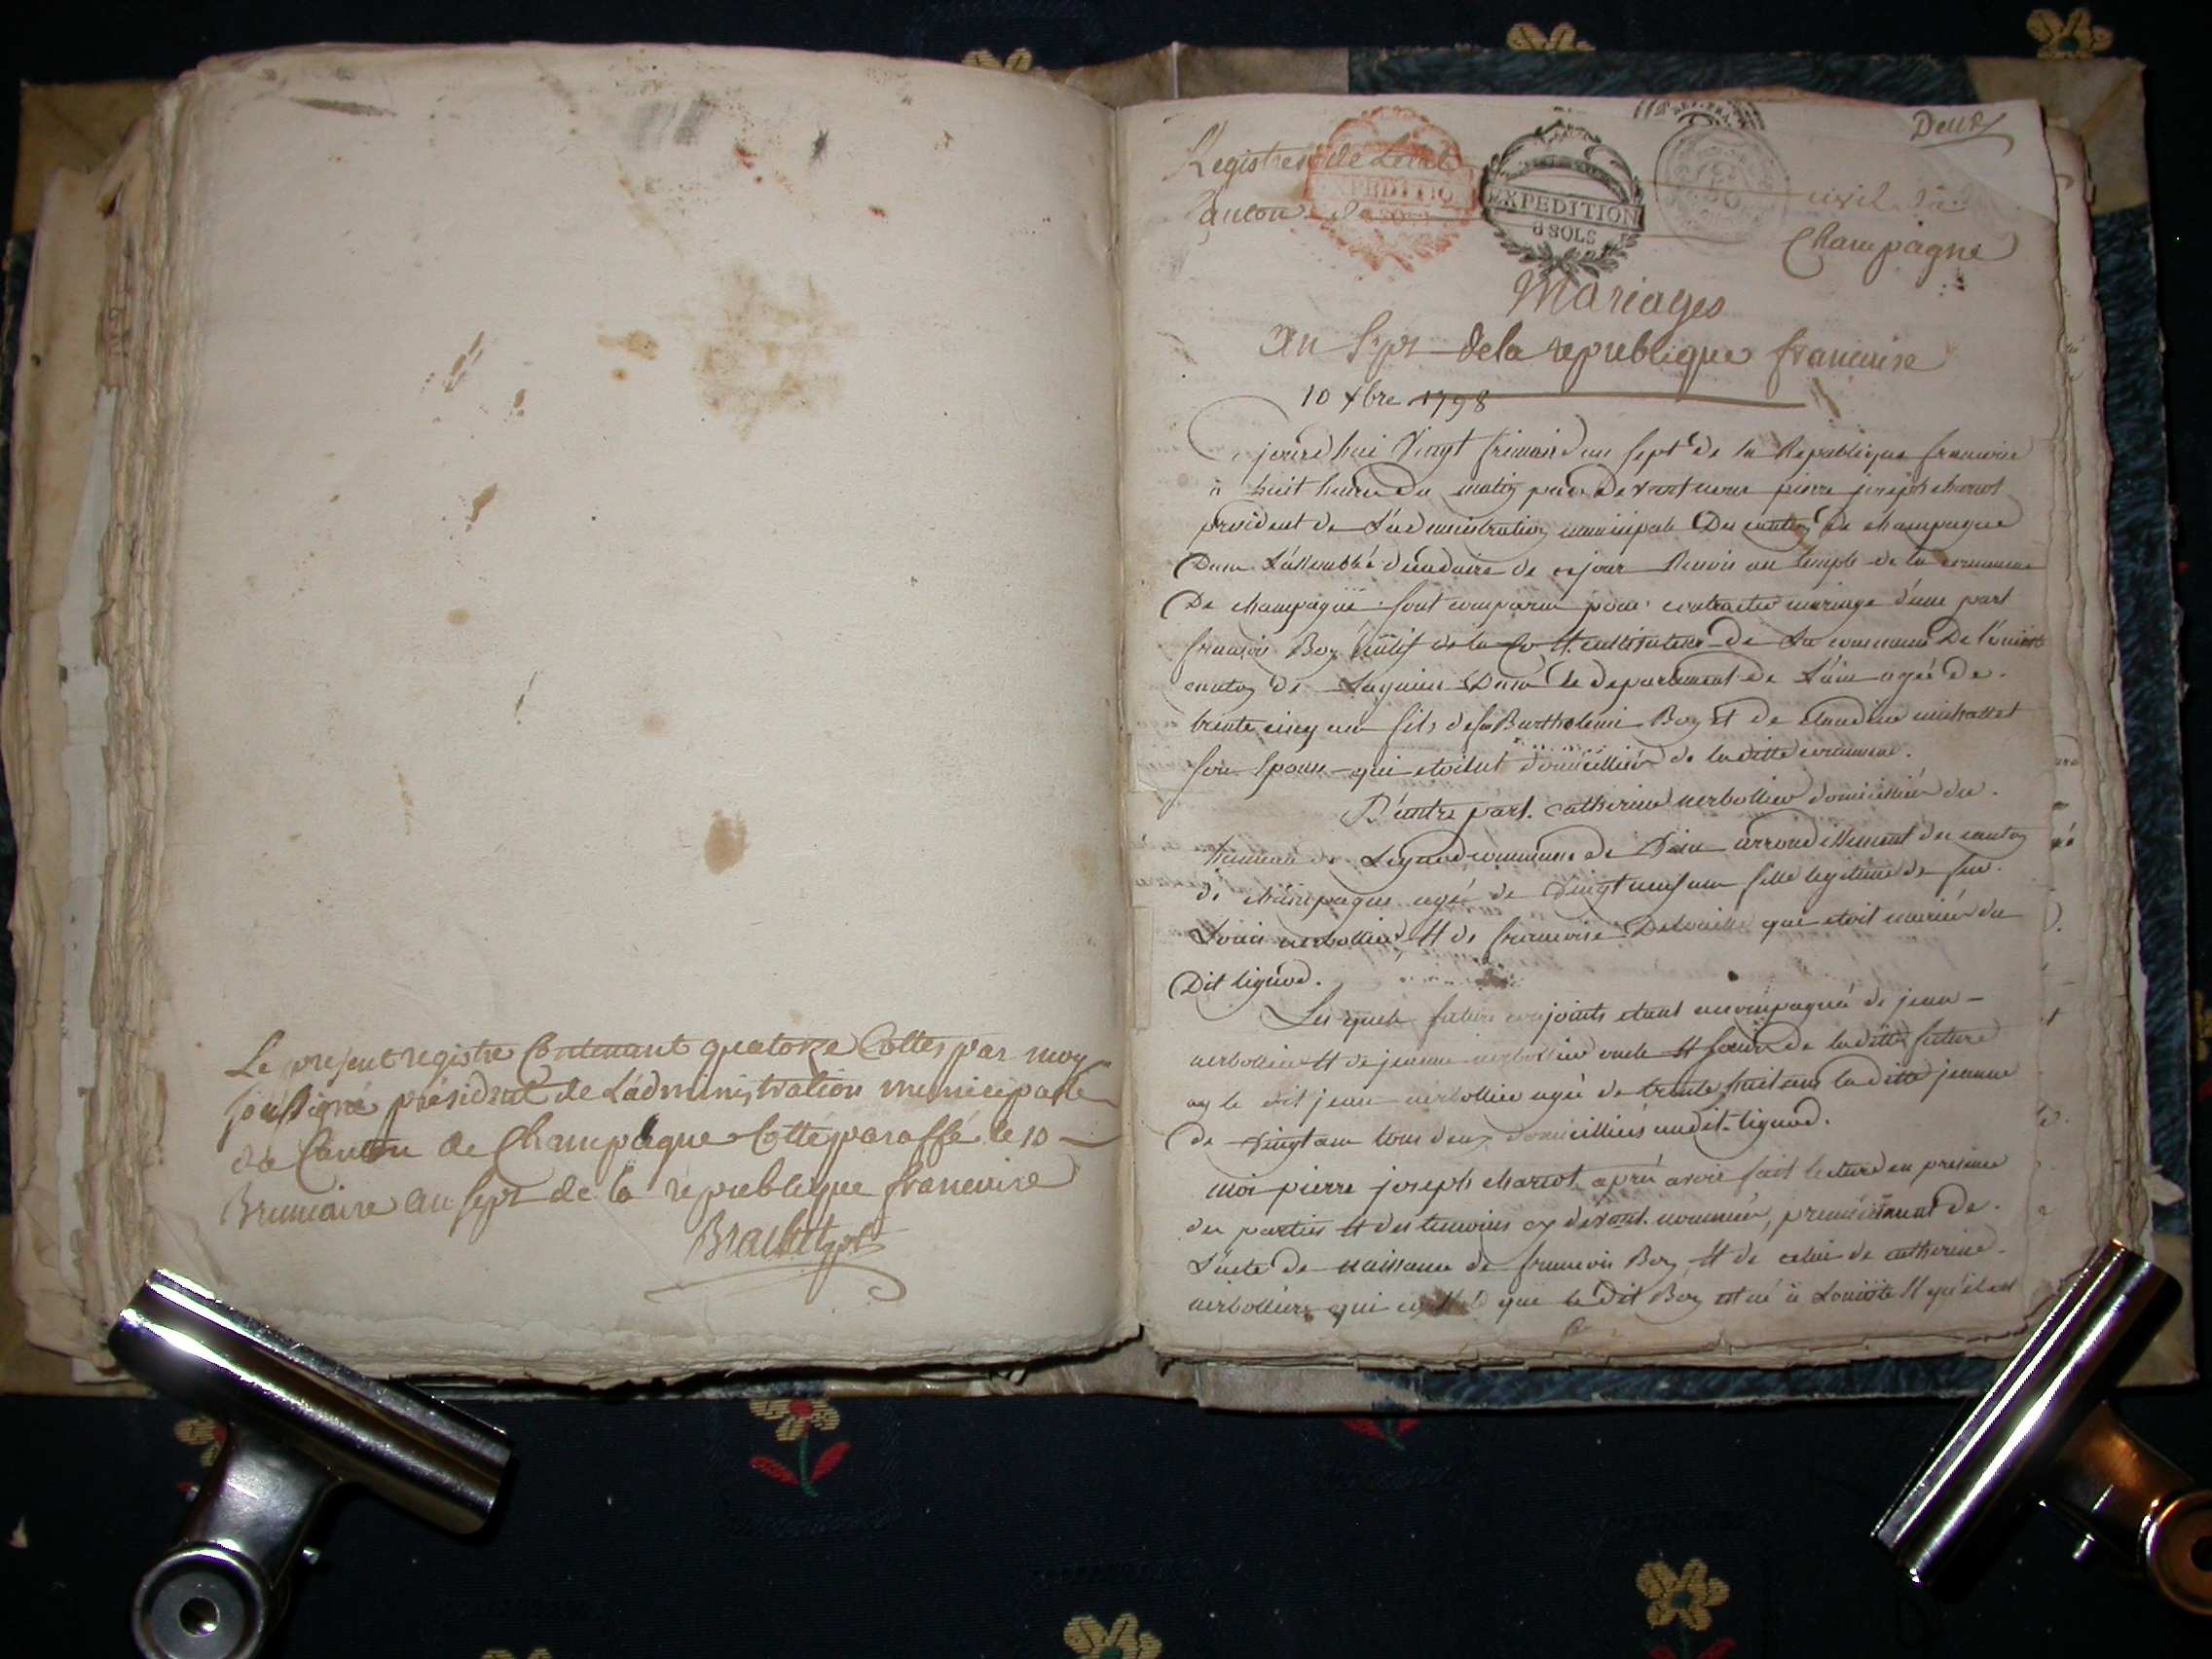 Le present registre Contenant quatorze Cottes par moy
soussigné président de L'administration municipale
du Canton de Champagne Cotté paraffé le 10
Brumaire an sept de la republique francoise
Registres de Letat civil du
Canton de Champagne
Deux
EXPEDITION
EXPEDITION
8 SOLS
Mariages
an sept de la republique francoise
10 Xbre 1798
jourd'hui Vingt frimaire an sept de la Republique francoise
a huit heures du matin par devant nous pierre joseph charcot
président de L'administration municipale Du canton de champagne
Dans L'assemblé decadaire de ce jour Reunis au temple de la commune
De champagne sont comparus pour contracter mariage d'une part
francois Boy natif de la et de La commune De
canton de Lagnieu Dans le departement de L'ain agé de
trente cinq ans fils de feu Bartholemi Boy et de Claudine
son Epouse qui etoient domicilliés de la ditte commune.
D'autre part. catherine domicilliée du
hameau de commune de arrondissement du canton
de champagne agé de vingt neuf ans fille legitime de feu
Louis et de francoise qui etoit mariée du
Dit lignod.
Les quels futurs conjoints etant accompagné de jean
et de jeanne oncle et soeur de la ditte future
le dit jean agé de trente huit ans la ditte jeanne
de vingt ans tous deux domicilliés audit lignod.
moi pierre joseph charcot après avoir fait lecture en presence
des parties et des temoins cy devant nommés, premierement de
L'acte de naissance de francois Boy et de celui de catherine
qui que le dit Boy est né a et qu'il est